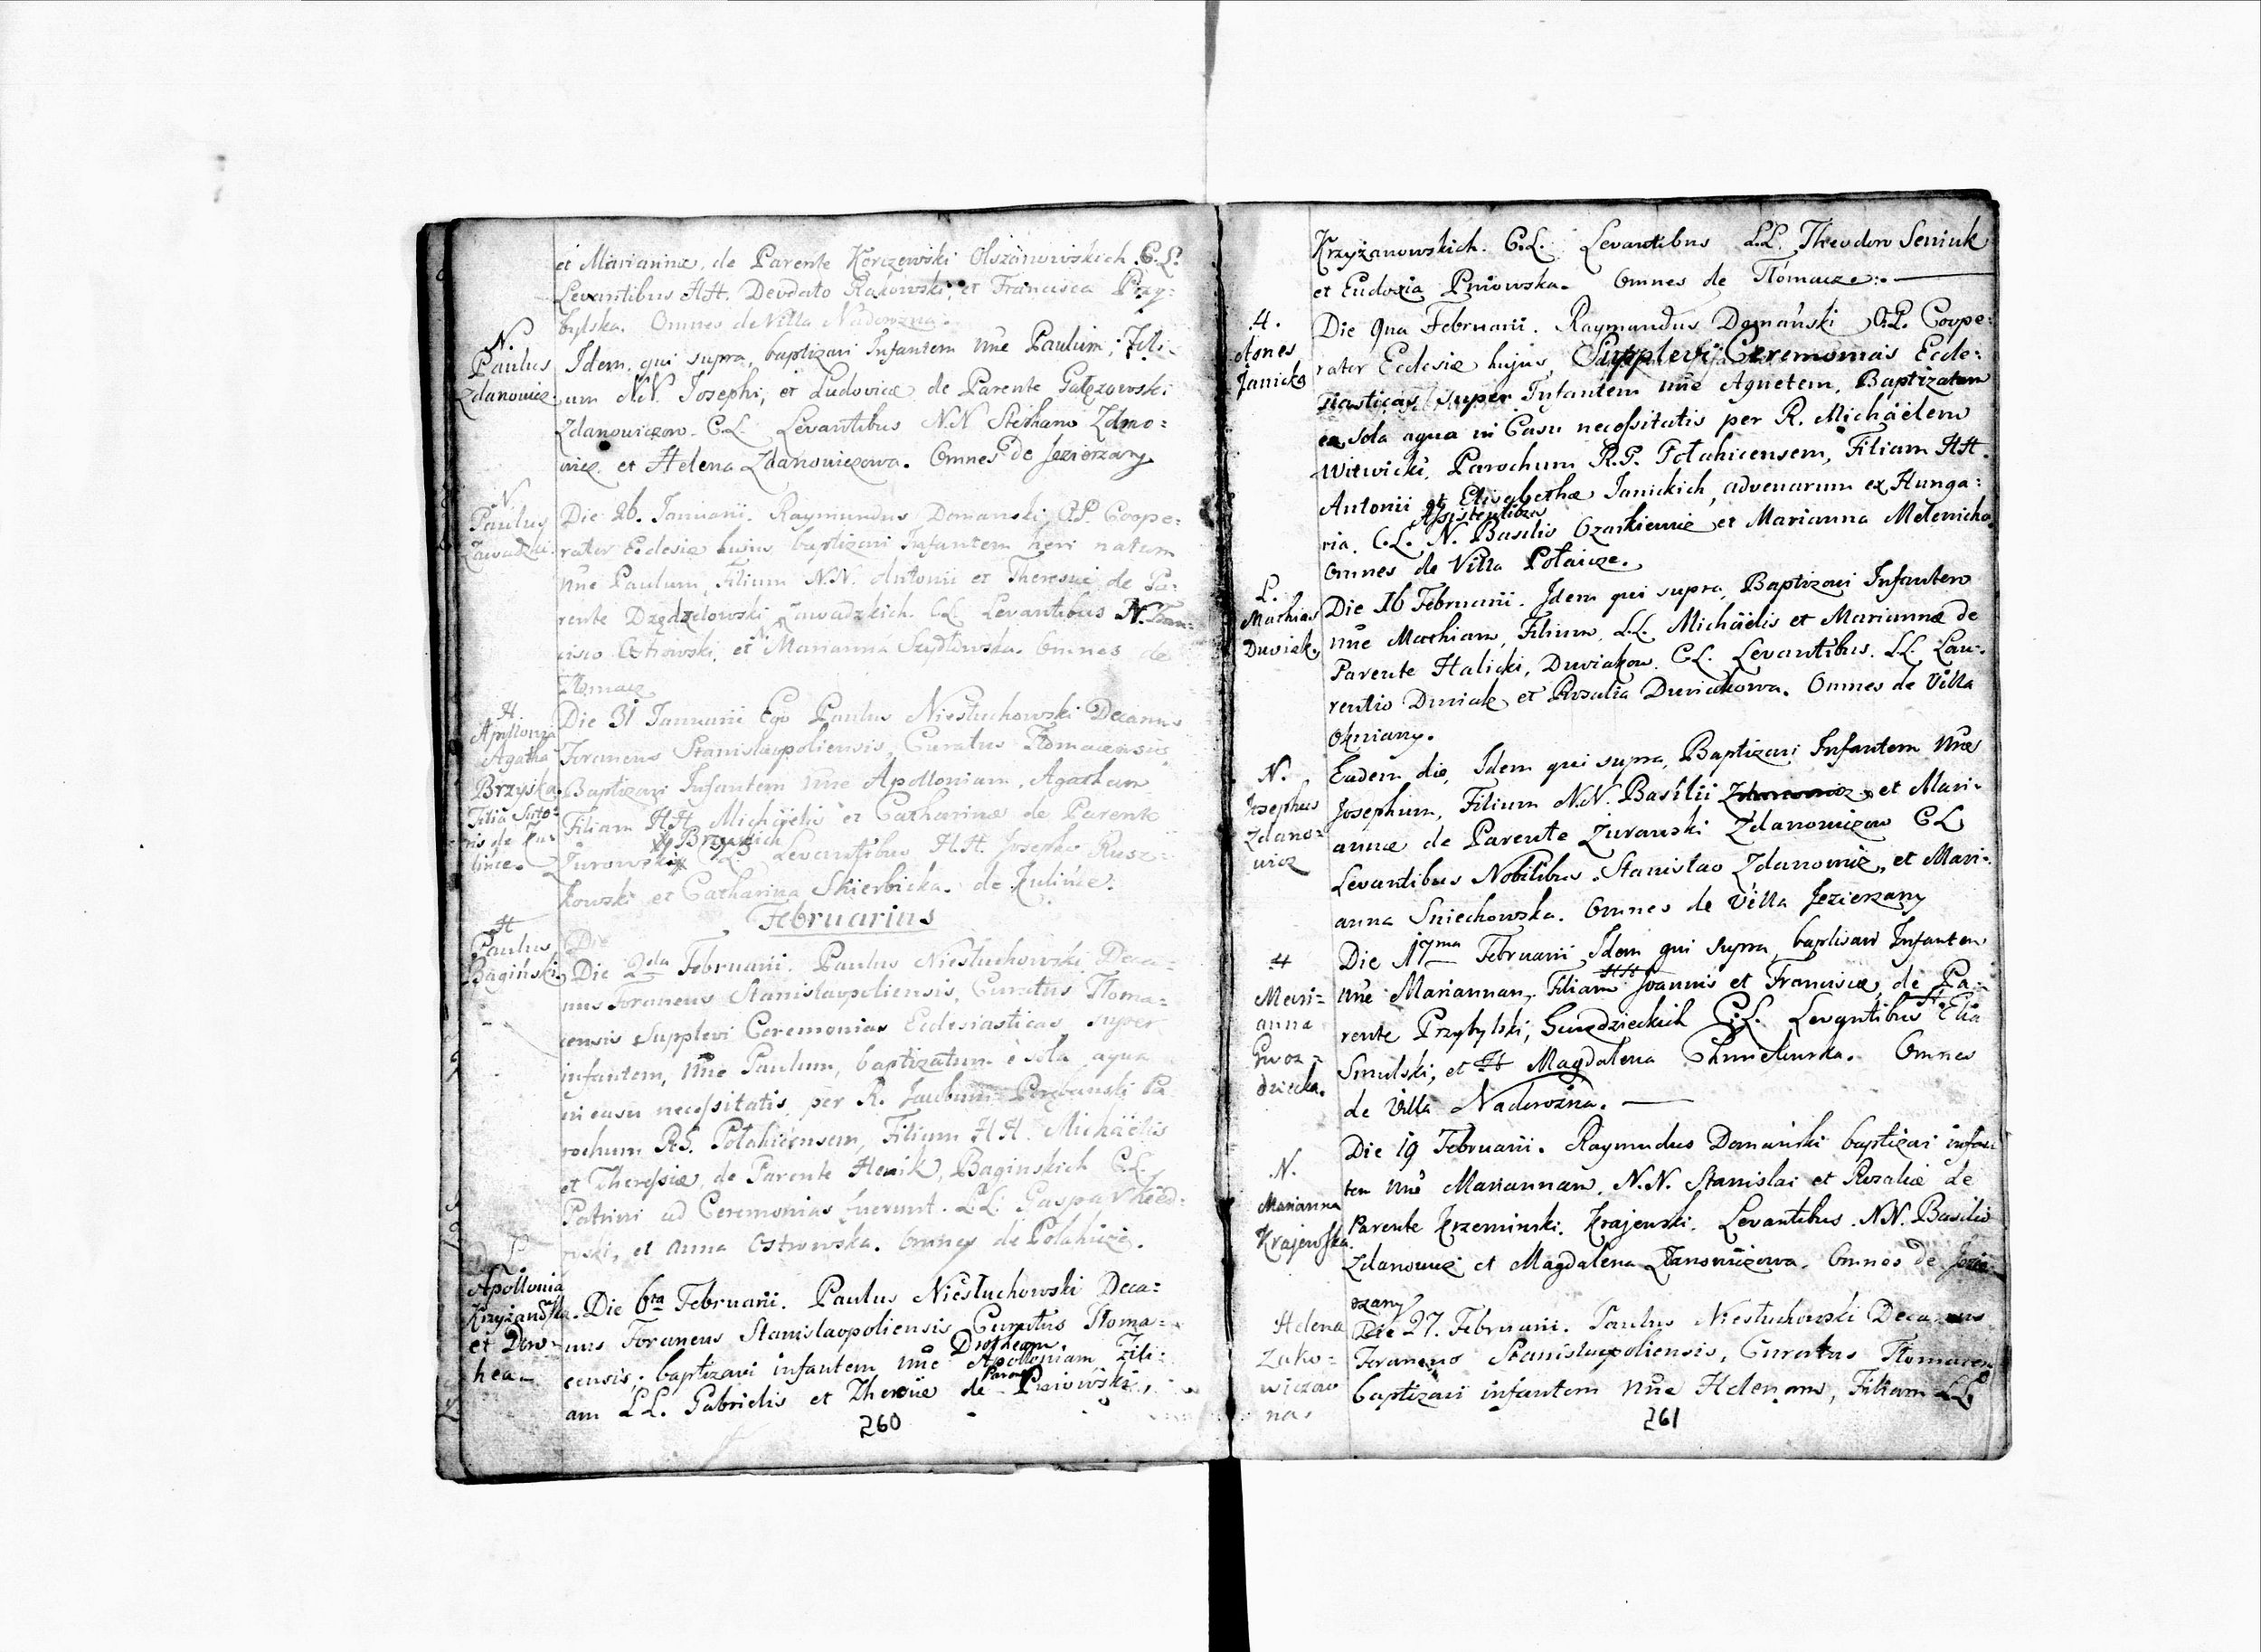 et Marianna, de Parente Korczewski Olszanowskich. C.L.
Levantibus HH. Deodato Rakowski, et Francisca Przy:
bylska. Omnes de Villa Nadorozna.
N.
Paulus
Zdanowicz
Idem qui supra, baptizavi Infantem nñe Paulum, Fili-
um NN. Josephi, et Ludovicæ de Parente Gałęzowski
Zdanowiczow. C.L. Levantibus N.N Stephano Zdano=
wicz et Helena Zdanowiczowa. Omnes de Jezierzany
N.
Paulus
Zawadzki
Die 26. Januarii. Raymundus Domanski O.P. Coope:
rator Ecclesiæ hujus baptizavi Infantem heri natum
nñe Paulum, Filium N.N. Antonii et Theresiæ de Pa-
rente Zawadzkich. C.L. Levantibus N. Fran-
cisco Ostrowski, et N. Marianna Szydłowska. Omnes de
Tłomacz
H
Apollonia
Agatha
Brzyska
Filia Suto-
ris de Ku-
lince.
Die 31 Januarii Ego Paulus Niesłuchowski Decanus
Foraneus Stanislaopoliensis, Curatus Tłomacensis,
Baptizavi Infantem nñe Apolloniam, Agatham
Filiam HH. Michäelis et Catharinæ de Parente
Brzyskich
Zurowski C.L. Levantibus H.H. Josepho Rusz-
kowski et Catharina Skierbicka. de Kulince.
Februarius
H
Paulus
Bagiński
Die
Die 2da Februarii. Paulus Niesłuchowski Deca-
nus Foraneus Stanislaopoliensis, Curatus Tłoma=
censis Supplevi Ceremonias Ecclesiasticas super
infantem, nñe Paulum, baptizatum è sola aqua
in casu necessitatis per R. Pa
rochum R.G. Połahicensem, Filium HH. Michäelis
et Theresiæ, de Parente Henik, Baginskich C.L.
Patrini ad Ceremonias fuerunt. LL. Gaspar
et Anna Ostrowska. Omnes de Połahicze.
L
Apollonia
Krzyżanowska
et Doro-
hea.
Die 6ta Februarii. Paulus Niesłuchowski Deca=
nus Foraneus Stanislaopoliensis Curatus Tłoma=
Dorotheam
censis, baptizavi infantem nñe Apolloniam, Fili:
Paren
am LL. Gabrielis et Theresiæ de Pniowski,
260
Krzyżanowskich. C.L. Levantibus LL. Theodoro Seniuk
et Eudoxia Pniowska. Omnes de Tłomacze.
H.
Agnes
Janicka
Die 9na Februarii. Raymundus Domański O.P. Coope:
rator Ecclesiæ hujus, Supplevi Ceremonias Eccle:
siasticas super Infantem nñe Agnetem, Baptizatam
ex sola aqua in Casu necessitatis per R. Michäelem
Witwicki, Parochum R.G. Połahicensem, Filiam HH.
Antonii et Elisabethæ Janickich, advenarum ex Hunga:
Assistentibus
ria. C.L. N. Basilio Ozarkiewicz et Marianna
Omnes de Villa Połaicze.
L.
Mathias
Duviak
Die 16 Februarii. Idem qui supra, Baptizavi Infantem
nñe Mathiam, Filium LL. Michäelis et Mariannæ de
Parente Halicki, Duviakow. C.L. Levantibus. LL. Lau-
rentio Duviak et Rosalia Duviakowa. Omnes de Villa
Okniany.
N.
Josephus
Zdano-
wicz
Eadem die, Idem qui supra, Baptizavi Infantem nñe
Josephum, Filium N.N. Basilii Zdanowicz et Mari-
annæ de Parente Zurawski Zdanowiczow C.L
Levantibus Nobilibus Stanislao Zdanowicz, et Mari-
anna Sniechowska. Omnes de Villa Jezierzany
H
Mari=
anna
Gwoz=
dziecka.
Die 17ma Februarii Idem qui supra, baptisavi Infantem
HH
nñe Mariannam, Filiam Joannis et Franciscæ, de Pa-
H.
rente Przybylski, Gwozdzieckich C.L. Levantibus Elia
Smulski, et H Magdalena Chmielewska. Omnes
de Villa Nadorożna.
N.
Marianna
Krajewska.
Die 19 Februarii. Raymundus Domański baptizavi infan
tem nñe Mariannam, N.N. Stanislai et Rosaliæ de
Parente Krzeminski. Krajewski. Levantibus. NN. Basilio
Zdanowicz et Magdalena Zdanowiczowa. Omnes de Jezie-
rzany
Helena
Zako=
wiczow
na.
Die 27. Februarii. Paulus Niesłuchowski Decanus
Foraneus Stanislaopoliensis, Curatus Tłomacen
baptizavi infantem nñe Helenam, Filiam LL.
261